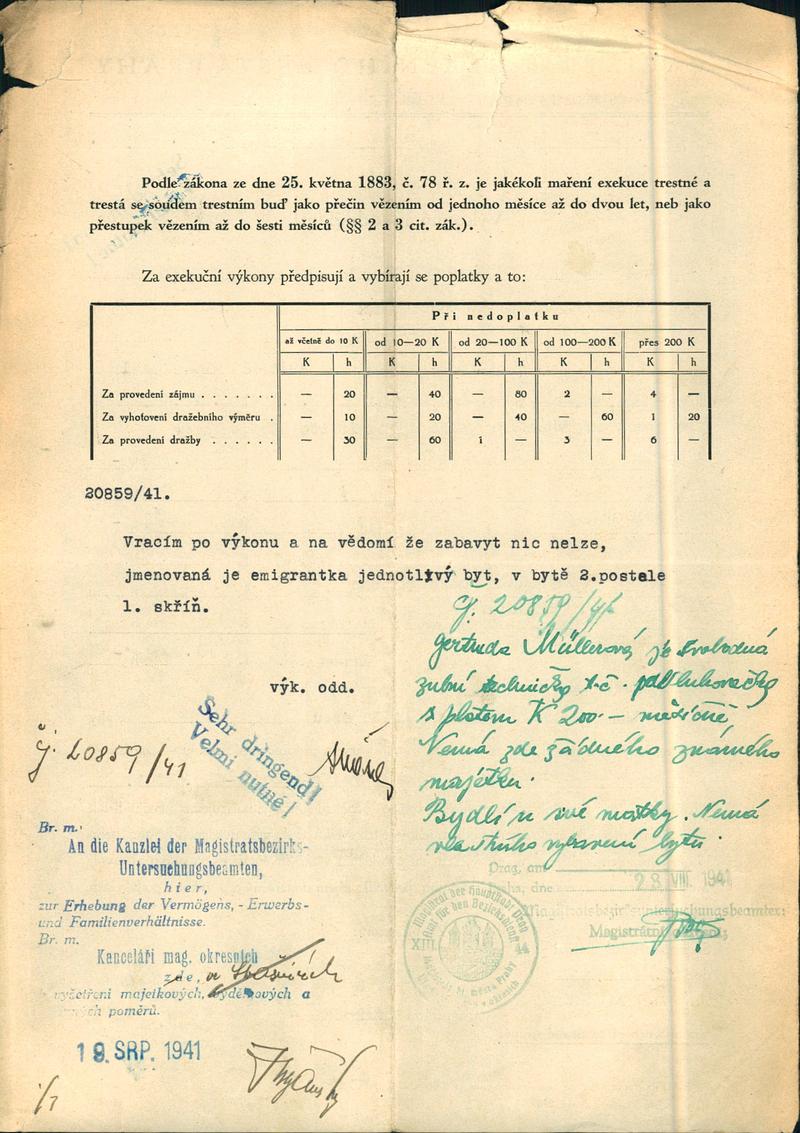 Podle zákona ze dne 25. května 1883, č. 78 ř. z. je jakékoli maření exekuce trestné a
trestá se soudem trestním buď jako přečin vězením od jednoho měsíce až do dvou let, neb jako
přestupek vězením až do šesti měsíců (§§ 2 a 3 cit. zák.).
Za exekuční výkony předpisují a vybírají se poplatky a to:
Při nedoplatku
až včetně do 10 K od 10—20 K od 20—100 K od 100—200 K přes 200 K
K h K h K h K h K h
Za provedení zájmu . . . . . . . — 20 — 40 — 80 2 — 4 —
Za vyhotovení dražebního výměru . — 10 — 20 — 40 — 60 1 20
Za provedení dražby . . . . . . — 30 — 60 1 — 3 — 6 —
20859/41.
Vracím po výkonu a na vědomí že zabavyt nic nelze,
jmenovaná je emigrantka jednotlivý byt, v bytě 2.postele
1. skříň.
výk. odd.
Čj. 20859/41
Gertruda Müllerová je svobodná
zubní technička t.č.
s platem K 200·— měsíčně,
Nemá zde žádného známého
majetku.
Bydlí u své matky. Nemá
vlastního vybavení bytu.
Č. 20859/41
Sehr dringend!
Velmi nutné!
Br. m.
An die Kanzlei der Magistratsbezirks-
Untersuchungsbeamten,
hier,
zur Erhebung der Vermögens, - Erwerbs-
und Familienverhältnisse.
Br. m.
Kanceláři mag. okresních
zde, v
vyšetření majetkových, výdělkových a
poměrů.
19. SRP. 1941
Prag, am
Praha, dne 23. VIII. 1941
Magistratsbezirksuntersuchungsbeamter:
Magistrátní
Magistrat der Hauptstadt Prag
Amt für den Bezirksdienst
XIII
1/7